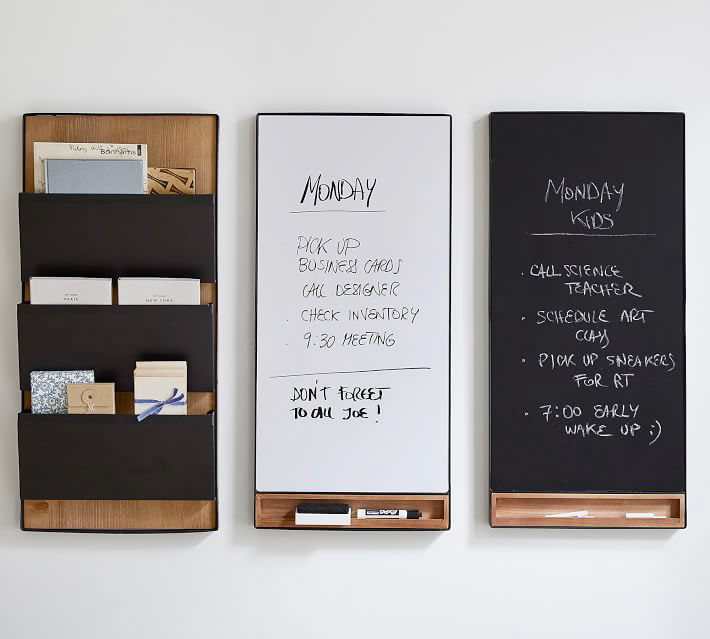 Bonhams
PARIS
NEW YORK
MONDAY
· PICK UP
BUSINESS CARDS
· CALL DESIGNER
· CHECK INVENTORY
· 9:30 MEETING
DON'T FORGET
TO CALL JOE!
MONDAY
KIDS
· CALL SCIENCE
TEACHER
· SCHEDULE ART
· PICK UP SNEAKERS
FOR RT
· 7:00 EARLY
WAKE UP ;)